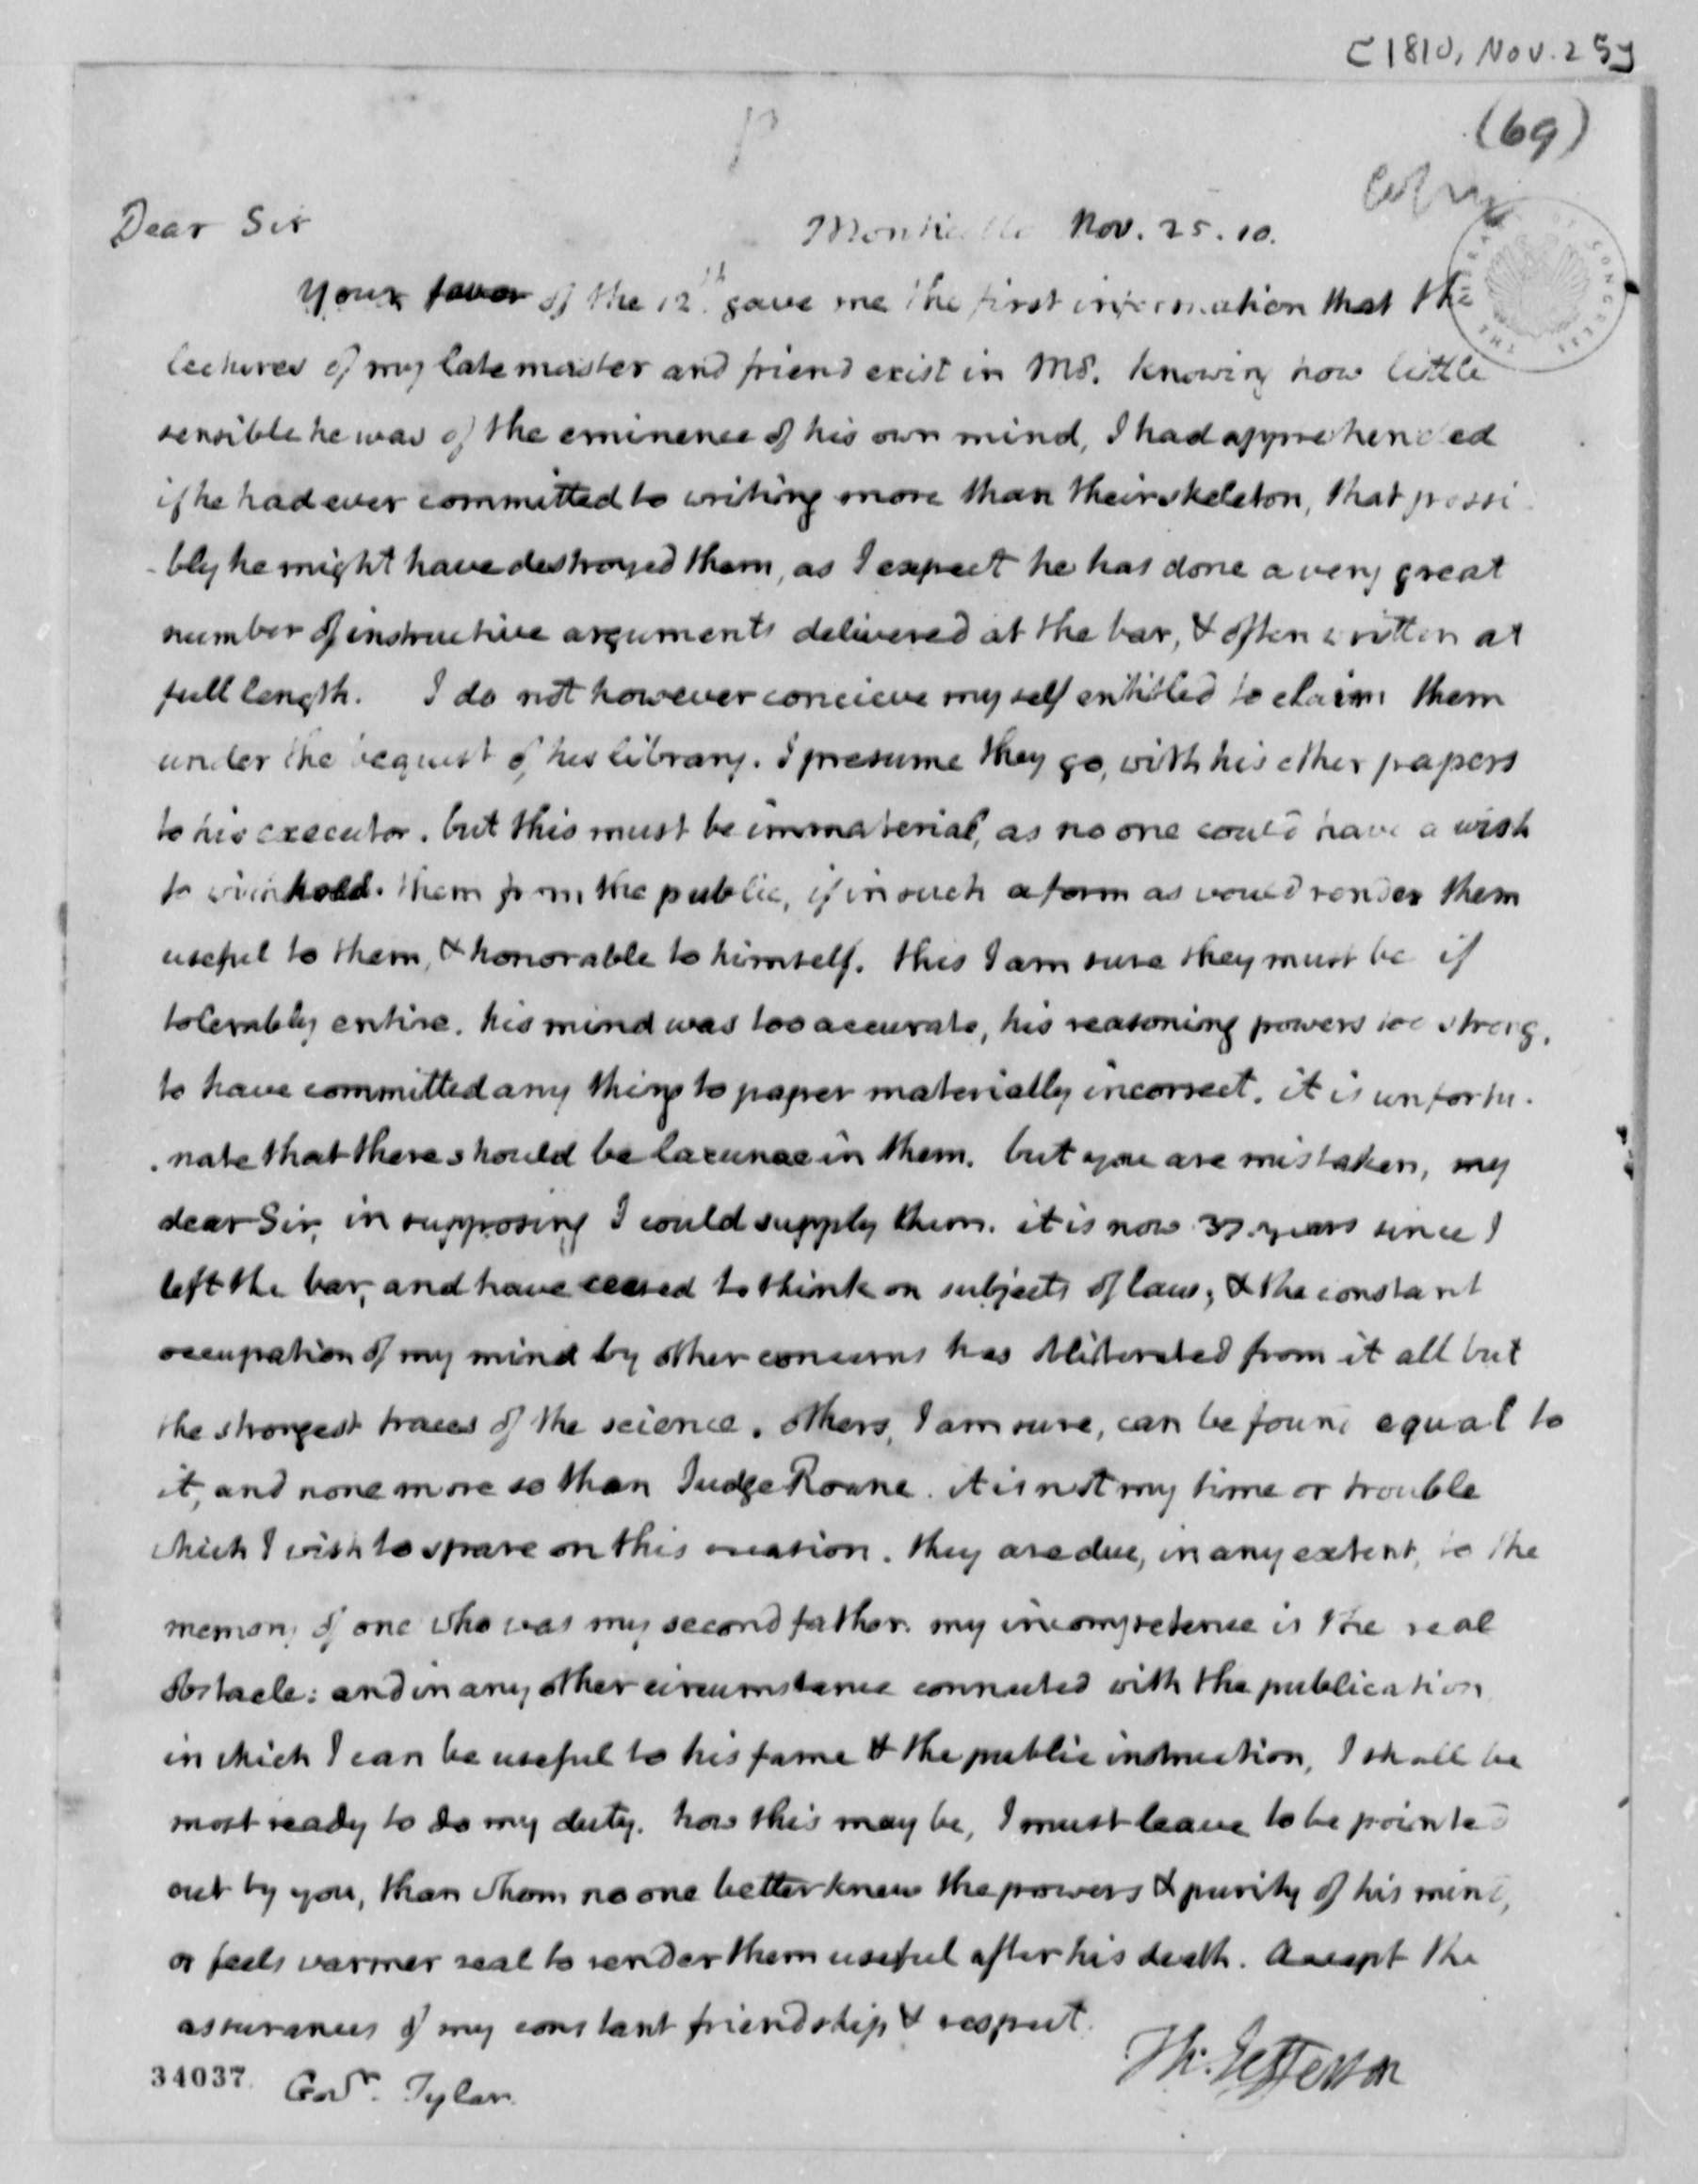 [1810, Nov. 25]
(69)
Dear Sir
Monticello Nov. 25. 10.
Your favor of the 12th. gave me the first information that the
lectures of my late master and friend exist in MS. knowing how little
sensible he was of the eminence of his own mind, I had apprehended
if he had ever committed to writing more than their skeleton, that possi
-bly he might have destroyed them, as I expect he has done a very great
number of instructive arguments delivered at the bar, & often written at
full length. I do not however concieve myself entitled to claim them
under the bequest of his library. I presume they go, with his other papers
to his executor. but this must be immaterial, as no one could have a wish
to withhold. them from the public, if in such a form as would render them
useful to them, & honorable to himself. this I am sure they must be if
tolerably entire. his mind was too accurate, his reasoning powers too strong,
to have committed any thing to paper materially incorrect. it is unfortu-
-nate that there should be lacunae in them. but you are mistaken, my
dear Sir, in supposing I could supply them. it is now 37. years since I
left the bar, and have ceased to think on subjects of law; & the constant
occupation of my mind by other concerns has obliterated from it all but
the strongest traces of the science. others, I am sure, can be found equal to
it, and none more so than Judge Roane. it is not my time or trouble
which I wish to spare on this occasion. they are due, in any extent, to the
memory of one who was my second father. my incompetence is the real
obstacle: and in any other circumstance connected with the publication
in which I can be useful to his fame & the public instruction, I shall be
most ready to do my duty. how this may be, I must leave to be pointed
out by you, than whom no one better knew the powers & purity of his mind,
or feels warmer zeal to render them useful after his death. Accept the
assurances of my constant friendship & respect.
Th: Jefferson
34037
Govr. Tyler